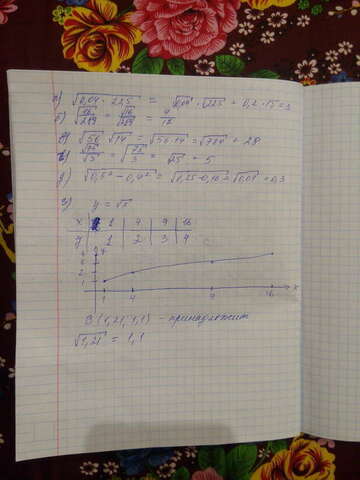 а) √0,04 · 225 = √0,04 · √225 = 0,2 · 15 = 3
б) √16/289 = √16/√289 = 4/17
в) √56 · √14 = √56·14 = √784 = 28
√75/√3 = √75/3 = √25 = 5
д) √0,5² − 0,4² = √0,25 − 0,16 = √0,09 = 0,3
y = √x
x 1 4 9 16
y 1 2 3 4
y
4
3
2
1
1 4 9 16 x
В (1,21; 1,1) - принадлежит
√1,21 = 1,1